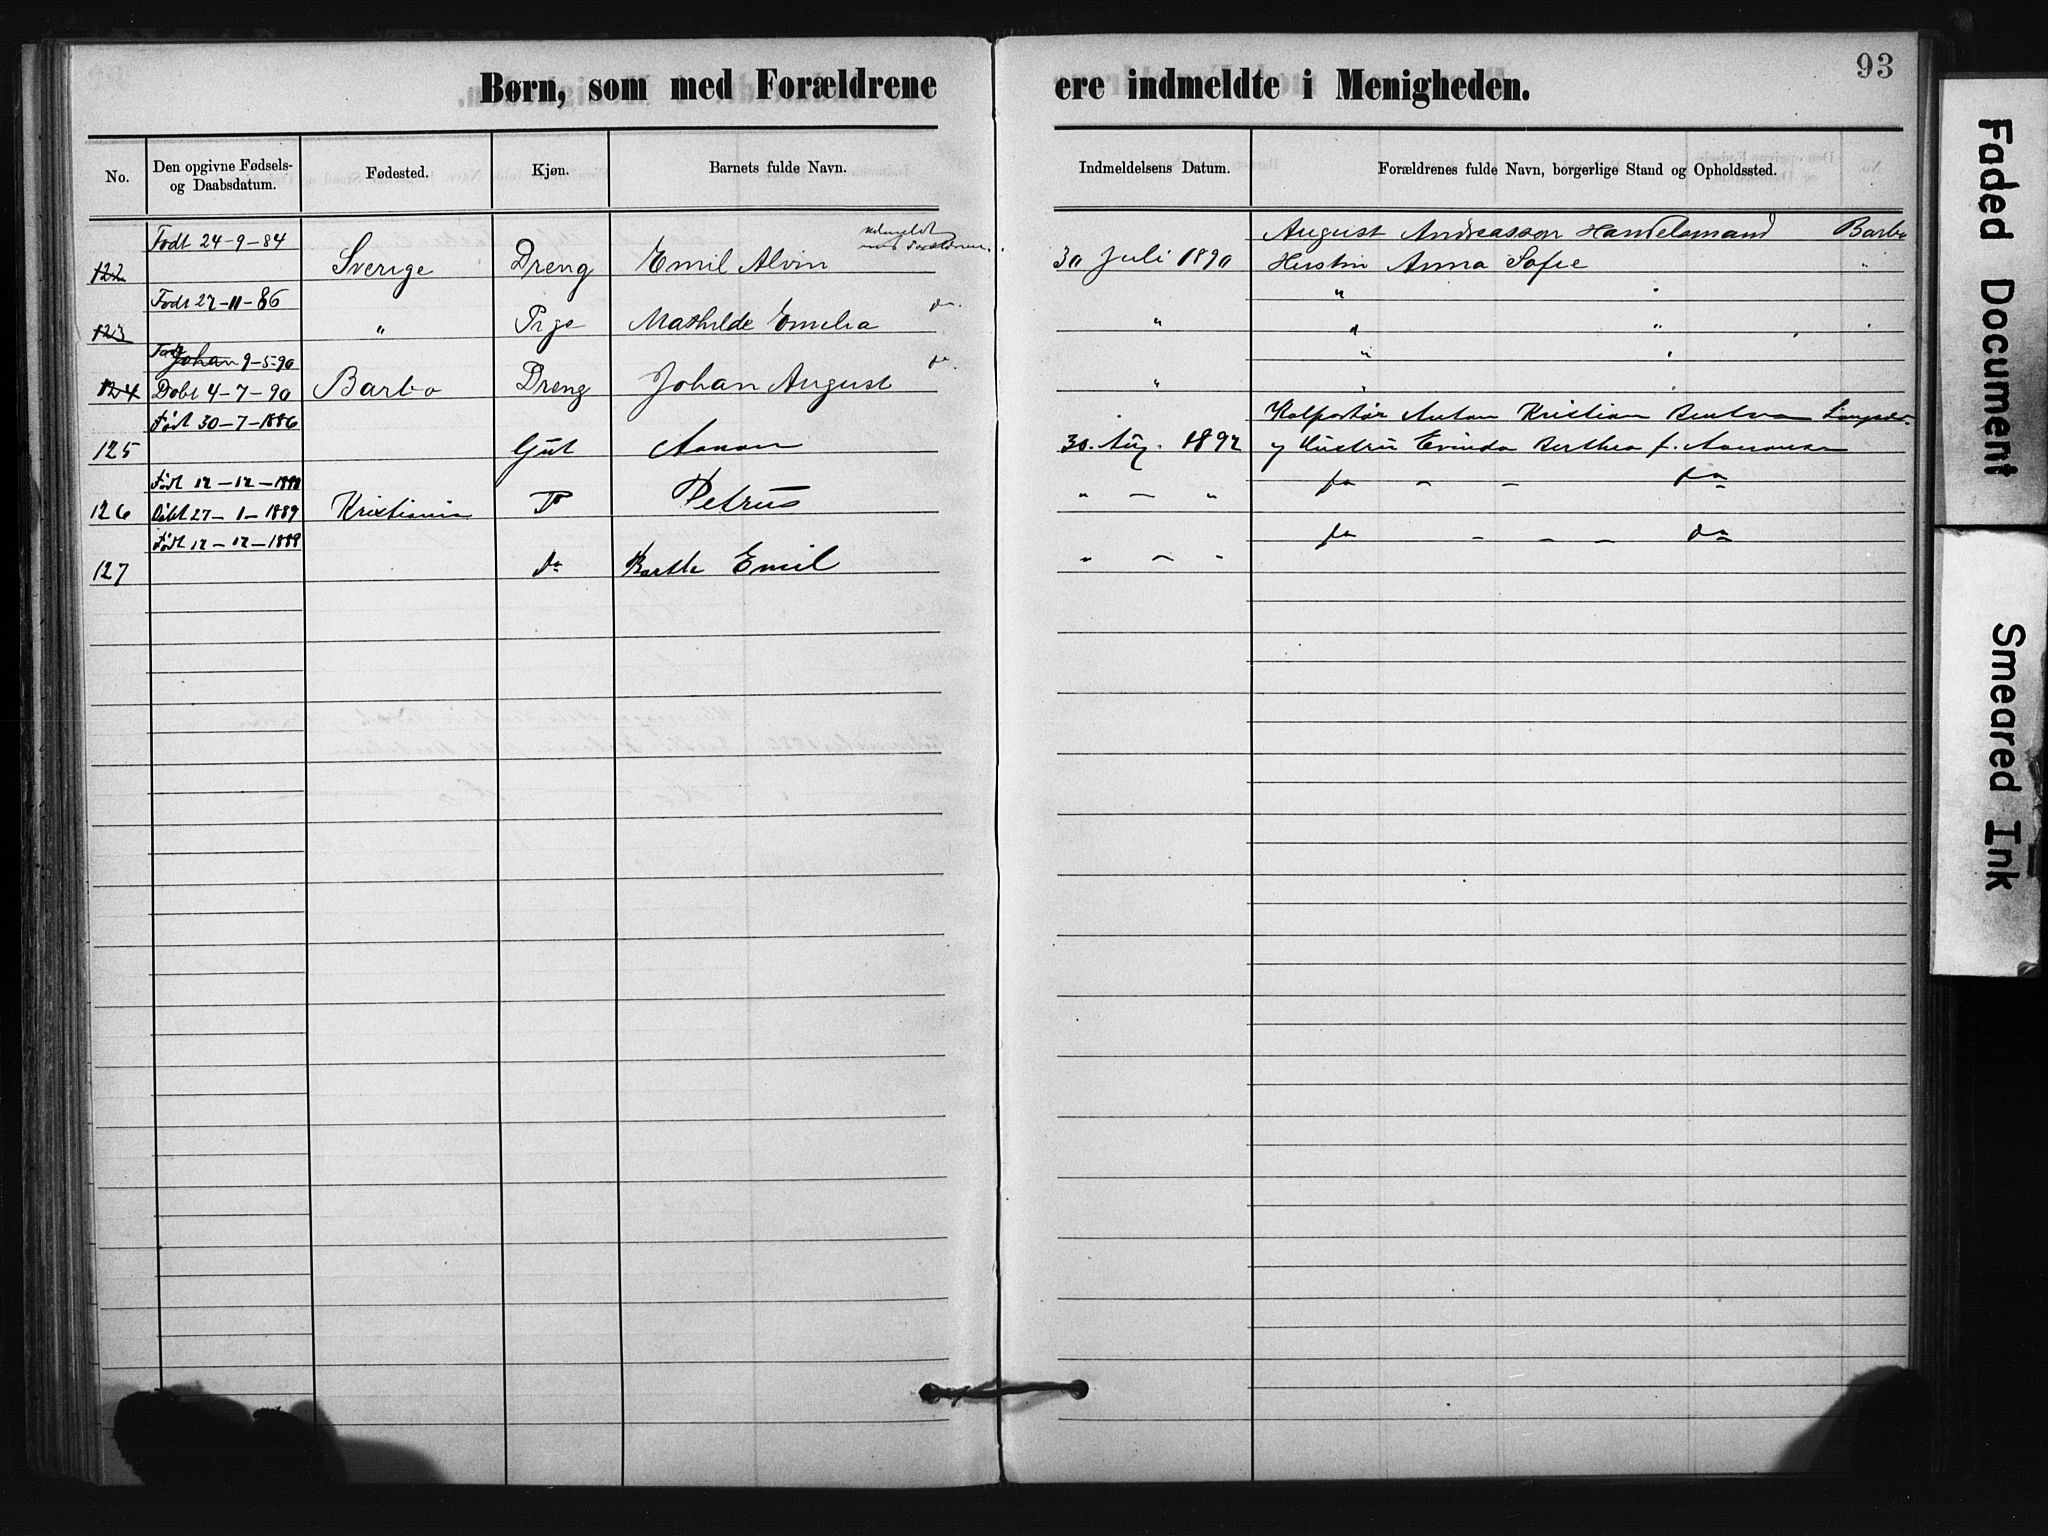 Børn, som med Forældrene ere indmeldte i Menigheden.
93
No.
Den opgivne Fødsels- og Daabsdatum.
Fødested.
Kjøn.
Barnets fulde Navn.
Indmeldelsens Datum.
Forældrenes fulde Navn, borgerlige Stand og Opholdssted.
Født 24-9-84 Udmeldt August Andreasson Handelsmand Barbo
122 Sverige Dreng Emil Alvin med Forældrene. 30 Juli 1890 Hustru Anna Sofie "
Født 27-11-86 do. " "
123 " Pige Mathilde Emelia " " "
Født Johan 9-5-90 do. " "
124 Døbt 4-7-90 Barbo Dreng Johan August " " "
Født 30-7-1886 Kolportør Anton Kristian
125 Gut 30. Aug. 1892 og Hustru Berthea f.
Født 12-12-1888 do - - do
126 Døbt 27-1-1889 Kristiania Petrus " - "
Født 12-12-1888 do - - - do
127 do Emil " - "
Faded Document
Smeared Ink